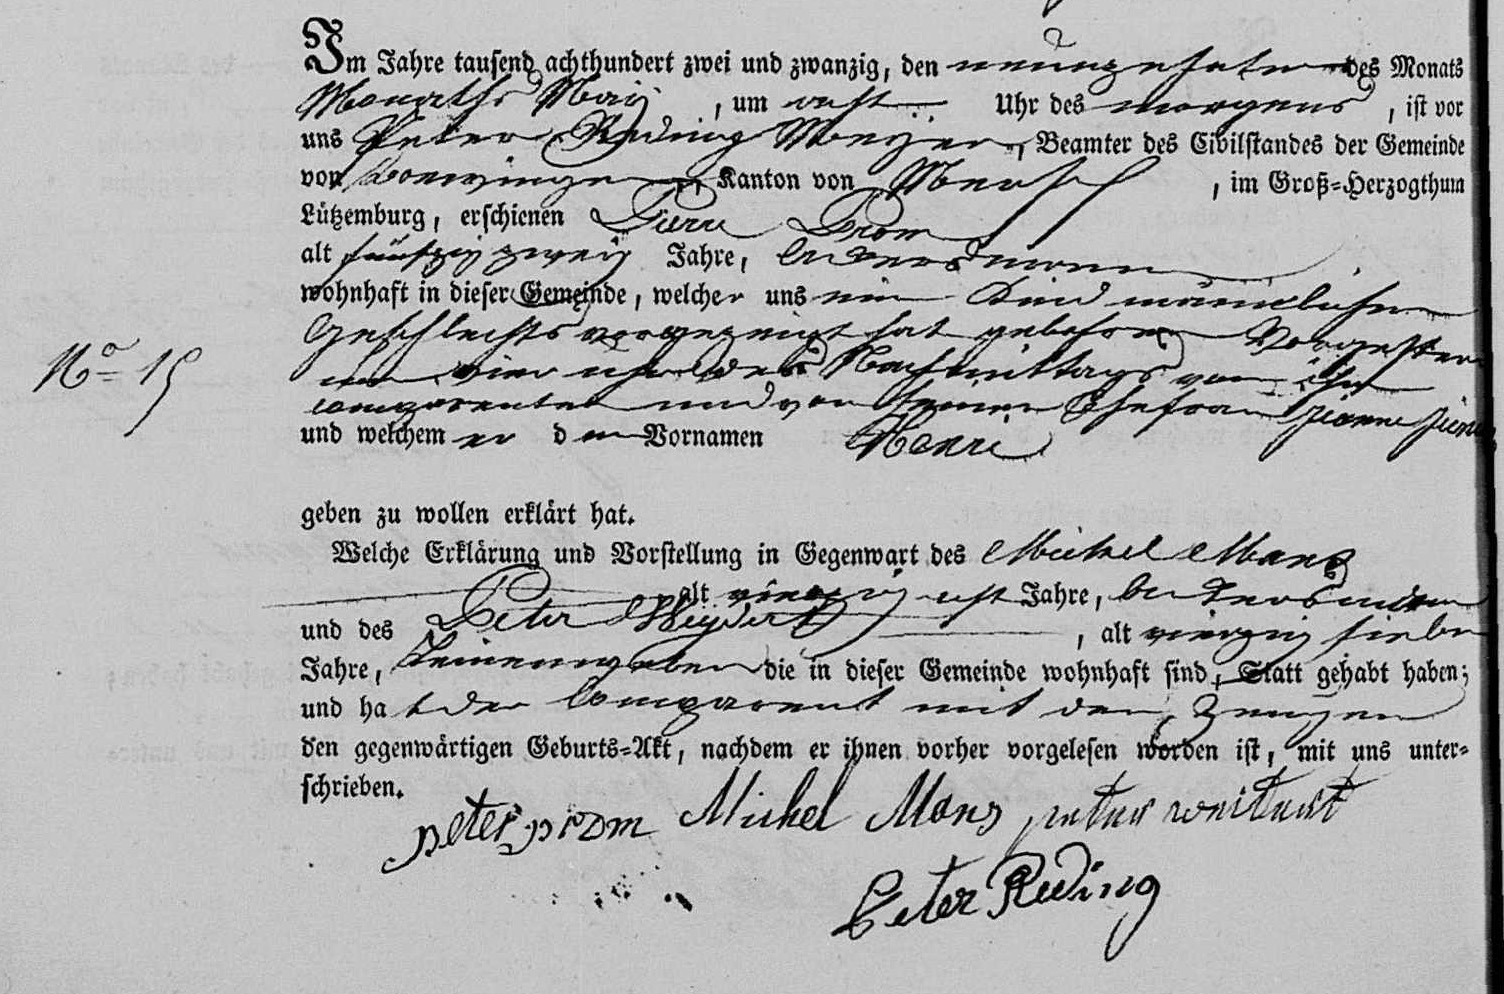 Im Jahre tausend achthundert zwei und zwanzig, den neunzehnten des Monats
Monaths May, um acht Uhr des morgens, ist vor
uns Peter Reding Meyer, Beamter des Civilstandes der Gemeinde
von Boevingen, Kanton von Mersch, im Groß=Herzogthum
Lützemburg, erschienen Pierre Prom
alt fünfzig zweÿ Jahre, Ackersmann
wohnhaft in dieser Gemeinde, welcher uns ein Kind männlichen
Geschlechts vorgezeigt hat gebohren Vorgestern
um vier uhr des Nachmittags von ihm
comparenten und von seiner Ehefrau Jeanne
No 15
und welchem er den Vornamen Henri
geben zu wollen erklärt hat.
Welche Erklärung und Vorstellung in Gegenwart des Michel Mans
alt vierzig acht Jahre, Ackersmann
und des Peter, alt vierzig sieben
Jahre, Leinenweber die in dieser Gemeinde wohnhaft sind, Statt gehabt haben;
und hat der Comparent mit den Zeugen
den gegenwärtigen Geburts=Akt, nachdem er ihnen vorher vorgelesen worden ist, mit uns unter=
schrieben.
peter prom Michel Mans peter
Peter Reding